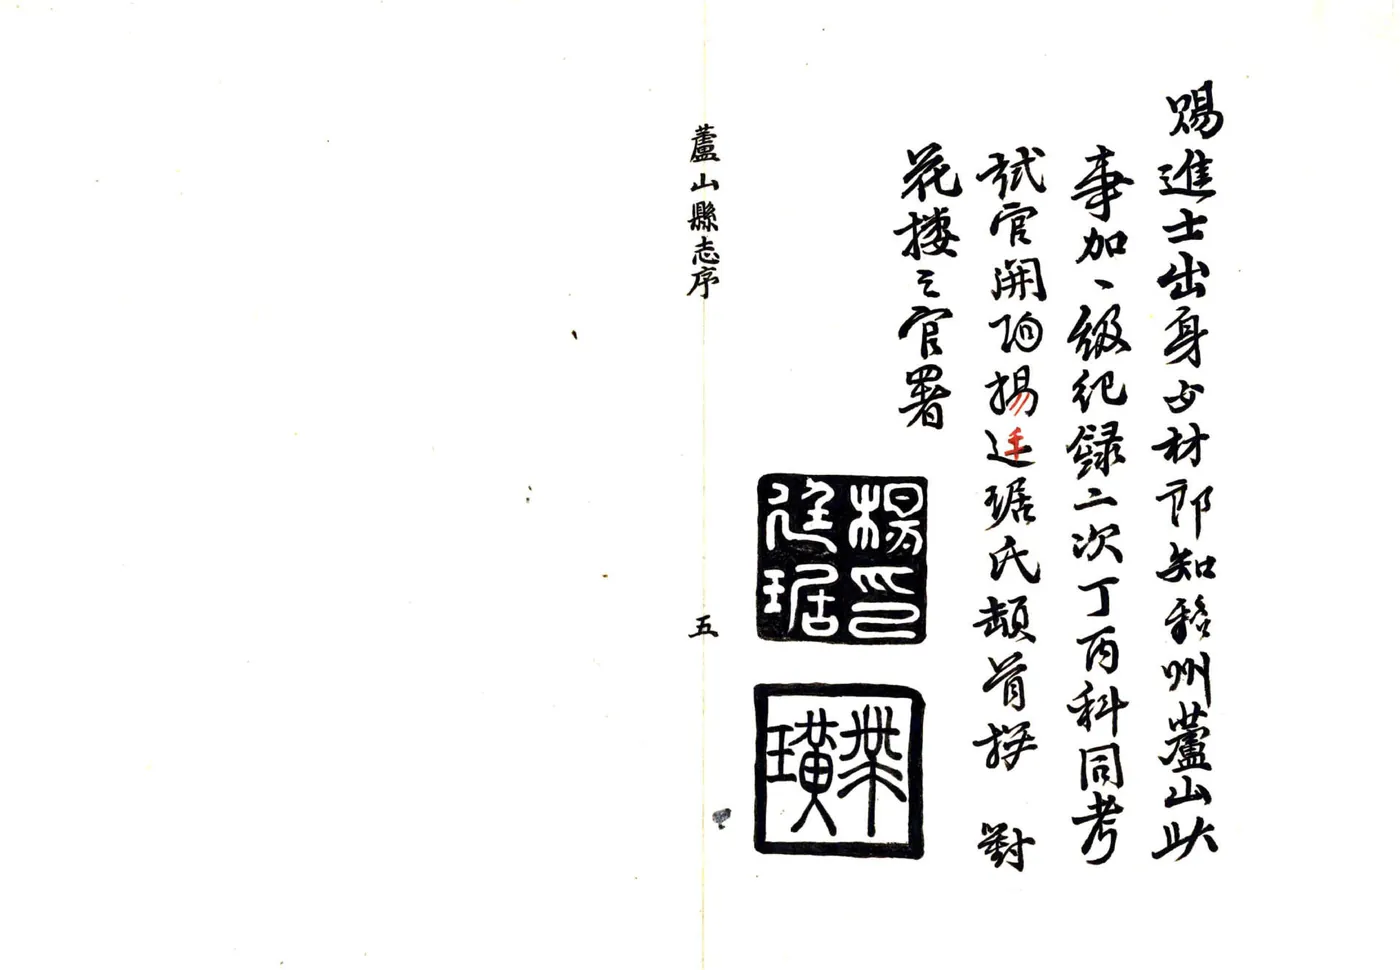 賜進士出身文林郎知雅州蘆山
事加一級纪録二次丁酉科同考
試官開陽楊廷琚氏頓首撰　對
花樓之官署
楊印
廷琚
璜
蘆山縣志序
五